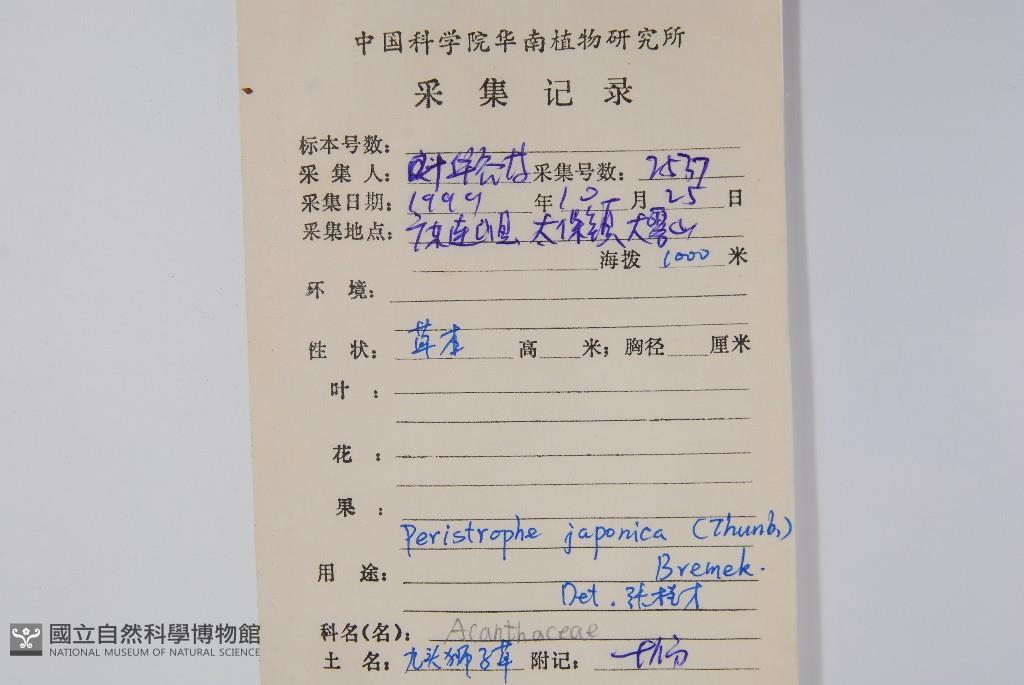 中国科学院华南植物研究所
采集记录
标本号数：
采集人： 采集号数：2537
采集日期：1999 年 10 月 25 日
采集地点：广东连山县 太保镇 大雾山
海拨 1000 米
环境：
性状：草本 高 米；胸径 厘米
叶：
花：
果：
Peristrophe japonica (Thunb.)
Bremek.
用途：
Det. 张桂才
科名(名)：Acanthaceae
土名：九头狮子草 附记：十份
國立自然科學博物館
NATIONAL MUSEUM OF NATURAL SCIENCE